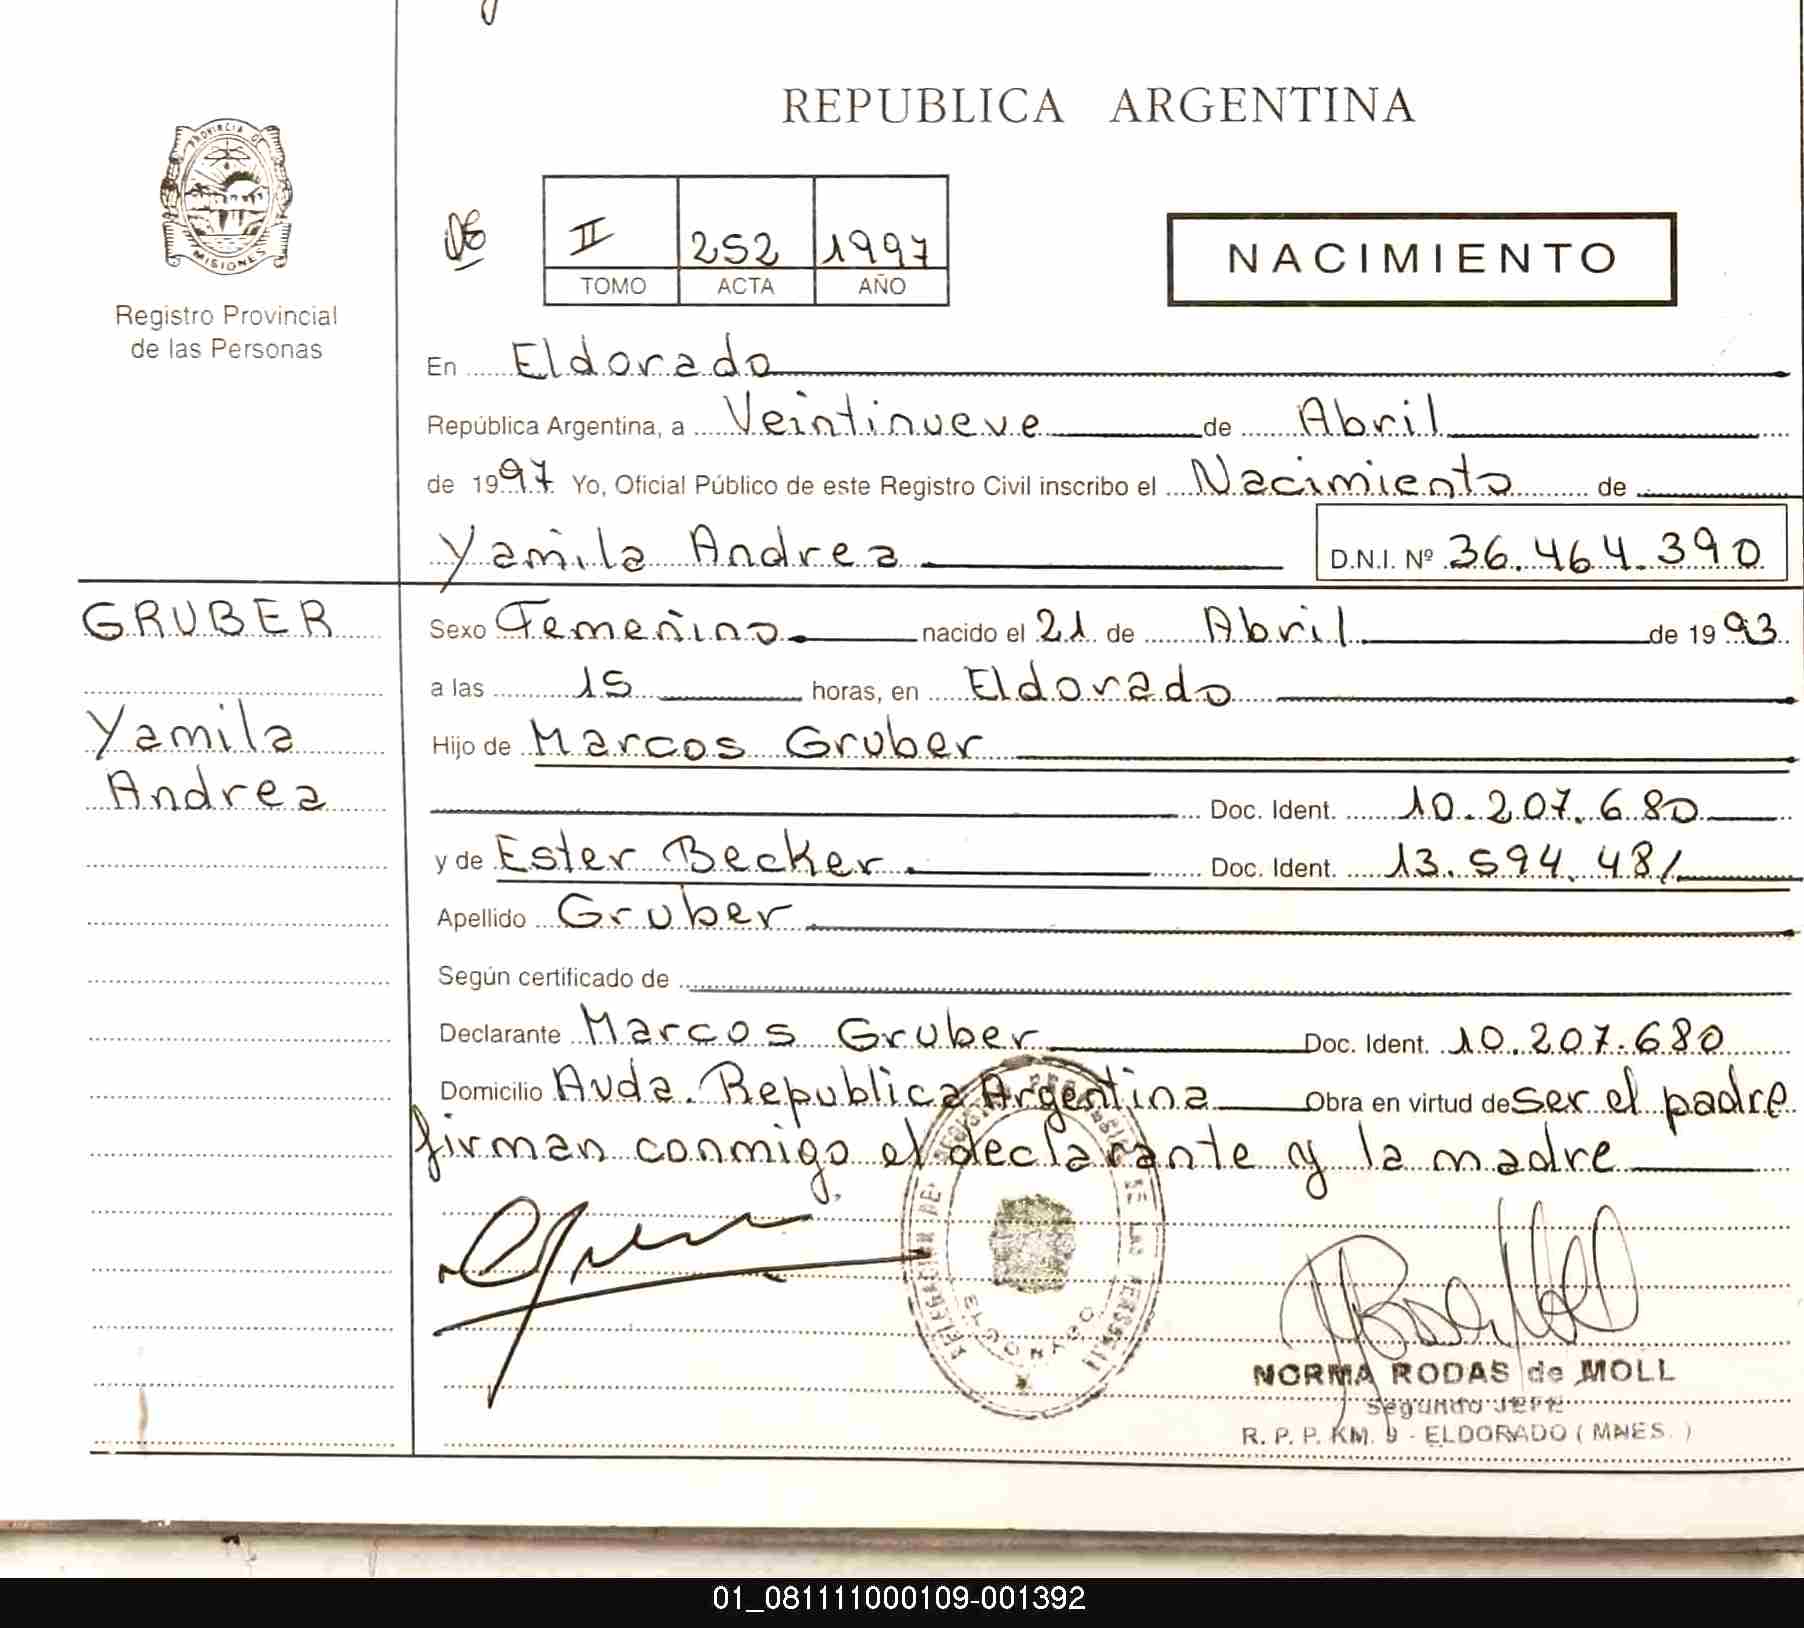 REPUBLICA ARGENTINA
PROVINCIA DE
MISIONES
Registro Provincial
de las Personas
II 252 1997
TOMO ACTA AÑO
NACIMIENTO
En Eldorado
República Argentina, a Veintinueve de Abril
de 1997 Yo, Oficial Público de este Registro Civil inscribo el Nacimiento de
Yamila Andrea D.N.I. Nº 36.464.390
GRUBER
Yamila
Andrea
Sexo Femenino nacido el 21 de Abril de 1993
a las 15 horas, en Eldorado
Hijo de Marcos Gruber
Doc. Ident. 10.207.680
y de Ester Becker Doc. Ident. 13.594.481
Apellido Gruber
Según certificado de
Declarante Marcos Gruber Doc. Ident. 10.207.680
Domicilio Avda. Republica Argentina Obra en virtud de ser el padre
firman conmigo el declarante y la madre
NORMA RODAS de MOLL
Segundo JEFE
R. P. P. KM. 9 - ELDORADO ( MNES. )
01_081111000109-001392